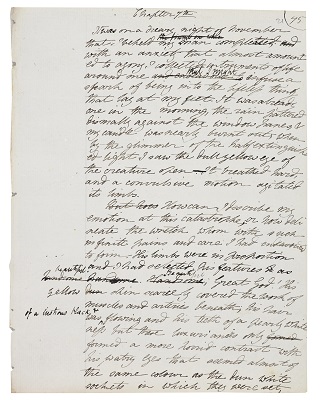 Chapter 7th
95
It was on a dreary night of November
that I beheld my man completed, and
with an anxiety that almost amount
ed to agony I collected instruments of life
around me that I might infuse a
spark of being into the lifeless thing
that lay at my feet. It was already
one in the morning, the rain pattered
dismally against the window panes, &
my candle was nearly burnt out, when
by the glimmer of the half extinguish
ed light I saw the dull yellow eye of
the creature open. It breathed hard,
and a convulsive motion agitated
its limbs.
But how How can I describe my
emotion at this catastrophe, or how deli
neate the wretch whom with such
infinite pains and care I had endeavoured
to form. His limbs were in proportion
and I had selected his features as
beautiful
handsome handsome. Great God! His
yellow skin scarcely covered the work of
muscles and arteries beneath; his hair
of a lustrous black &
was flowing and his teeth of a pearly white
ness but that luxuriances only
formed a more horrid contrast with
his watry eyes that seemed almost of
the same colour as the dun white
sockets in which they were set,